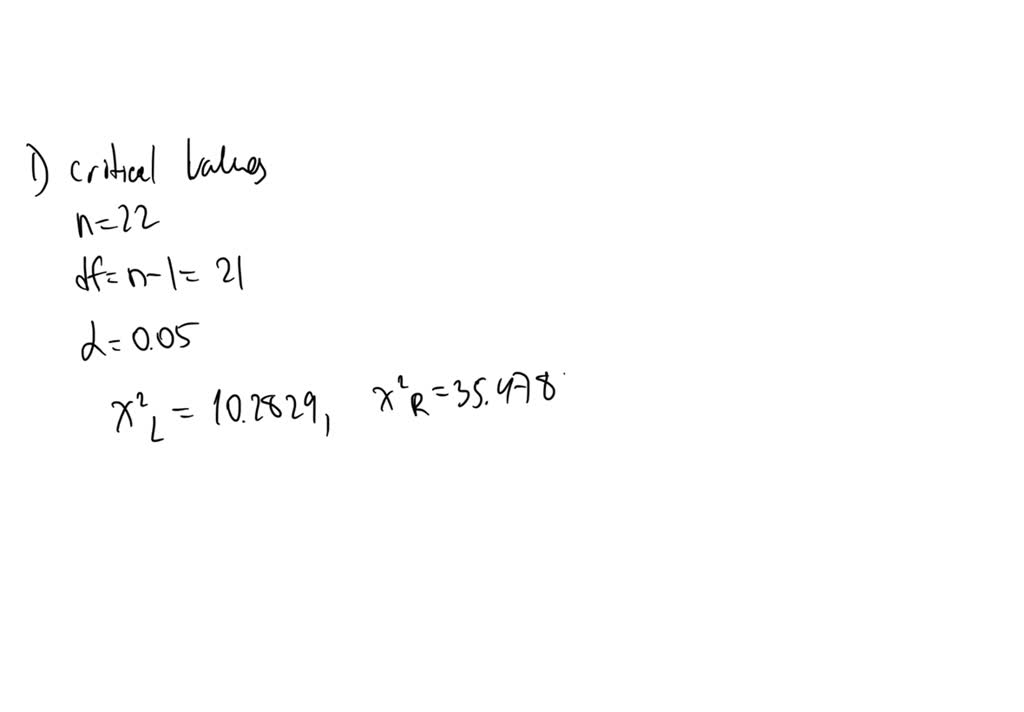 1) critical values
n=22
df=n-1= 21
α=0.05
χ²L = 10.2829, χ²R=35.478